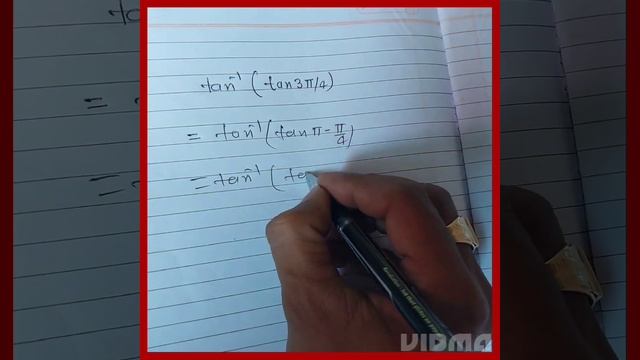 tan⁻¹ ( tan 3π/4)
= tan⁻¹ ( tan π - π/4)
= tan⁻¹ ( ta
VIDMA